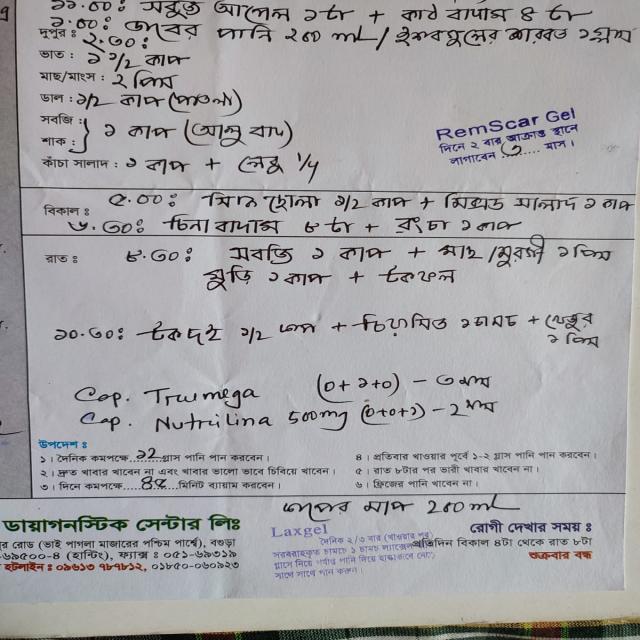 ১১.০০: সবুজ আপেল ১টা + কাঠ বাদাম ৪ টা
১.০০: ডাবের পানি ২০০ mL / ইশবগুলের শরবত ১ গ্লাস
দুপুর: ২.৩০:
ভাত: ১ ১/২ কাপ
মাছ/মাংস: ২ পিস
ডাল: ১/২ কাপ (পাতলা)
সবজি:
শাক: } ১ কাপ (আলু বাদ)
কাঁচা সালাদ: ১ কাপ + লেবু ১/৪
RemScar Gel
দিনে ২ বার আক্রান্ত স্থানে
লাগাবেন ৩ মাস।
বিকাল: ৫.০০: সিদ্ধ ছোলা ১/২ কাপ + মিক্সড সালাদ ১ কাপ
৬.৩০: চিনা বাদাম ৮ টা + রং চা ১ কাপ
রাত: ৮.৩০: সবজি ১ কাপ + মাছ/মুরগী ১ পিস
মুড়ি ১ কাপ + টকফল
১০.৩০: টকদই ১/২ কাপ + চিয়াসিড ১ চামচ + খেজুর
১ পিস
Cap. Trumega (০+১+০) – ৩ মাস
Cap. Nutrilina 500mg (০+০+১) – ২ মাস
উপদেশ:
১। দৈনিক কমপক্ষে ১২ গ্লাস পানি পান করবেন।
২। দ্রুত খাবার খাবেন না এবং খাবার ভালো ভাবে চিবিয়ে খাবেন।
৩। দিনে কমপক্ষে ৪৫ মিনিট ব্যায়াম করবেন।
৪। প্রতিবার খাওয়ার পূর্বে ১-২ গ্লাস পানি পান করবেন।
৫। রাত ৮টার পর ভারী খাবার খাবেন না।
৬। ফ্রিজের পানি খাবেন না।
কাপের মাপ 200 mL
ডায়াগনস্টিক সেন্টার লিঃ
র রোড (ভাই পাগলা মাজারের পশ্চিম পার্শ্বে), বগুড়া
৬৯৫০০-৪ (হান্টিং), ফ্যাক্স : ০৫১-৬৯৩১৯
হটলাইন : ০৯৬১৩ ৭৮৭৮১২, ০১৮৫০-০৬০৯২৩
Laxgel
দৈনিক ২/৩ বার (খাওয়ার পর)
সরবরাহকৃত চামচে ১ চামচ
গ্লাসে নিয়ে পর্যাপ্ত পানি দিয়ে
সাথে সাথে পান করুন।
রোগী দেখার সময় :
প্রতিদিন বিকাল ৪টা থেকে রাত ৮টা
শুক্রবার বন্ধ